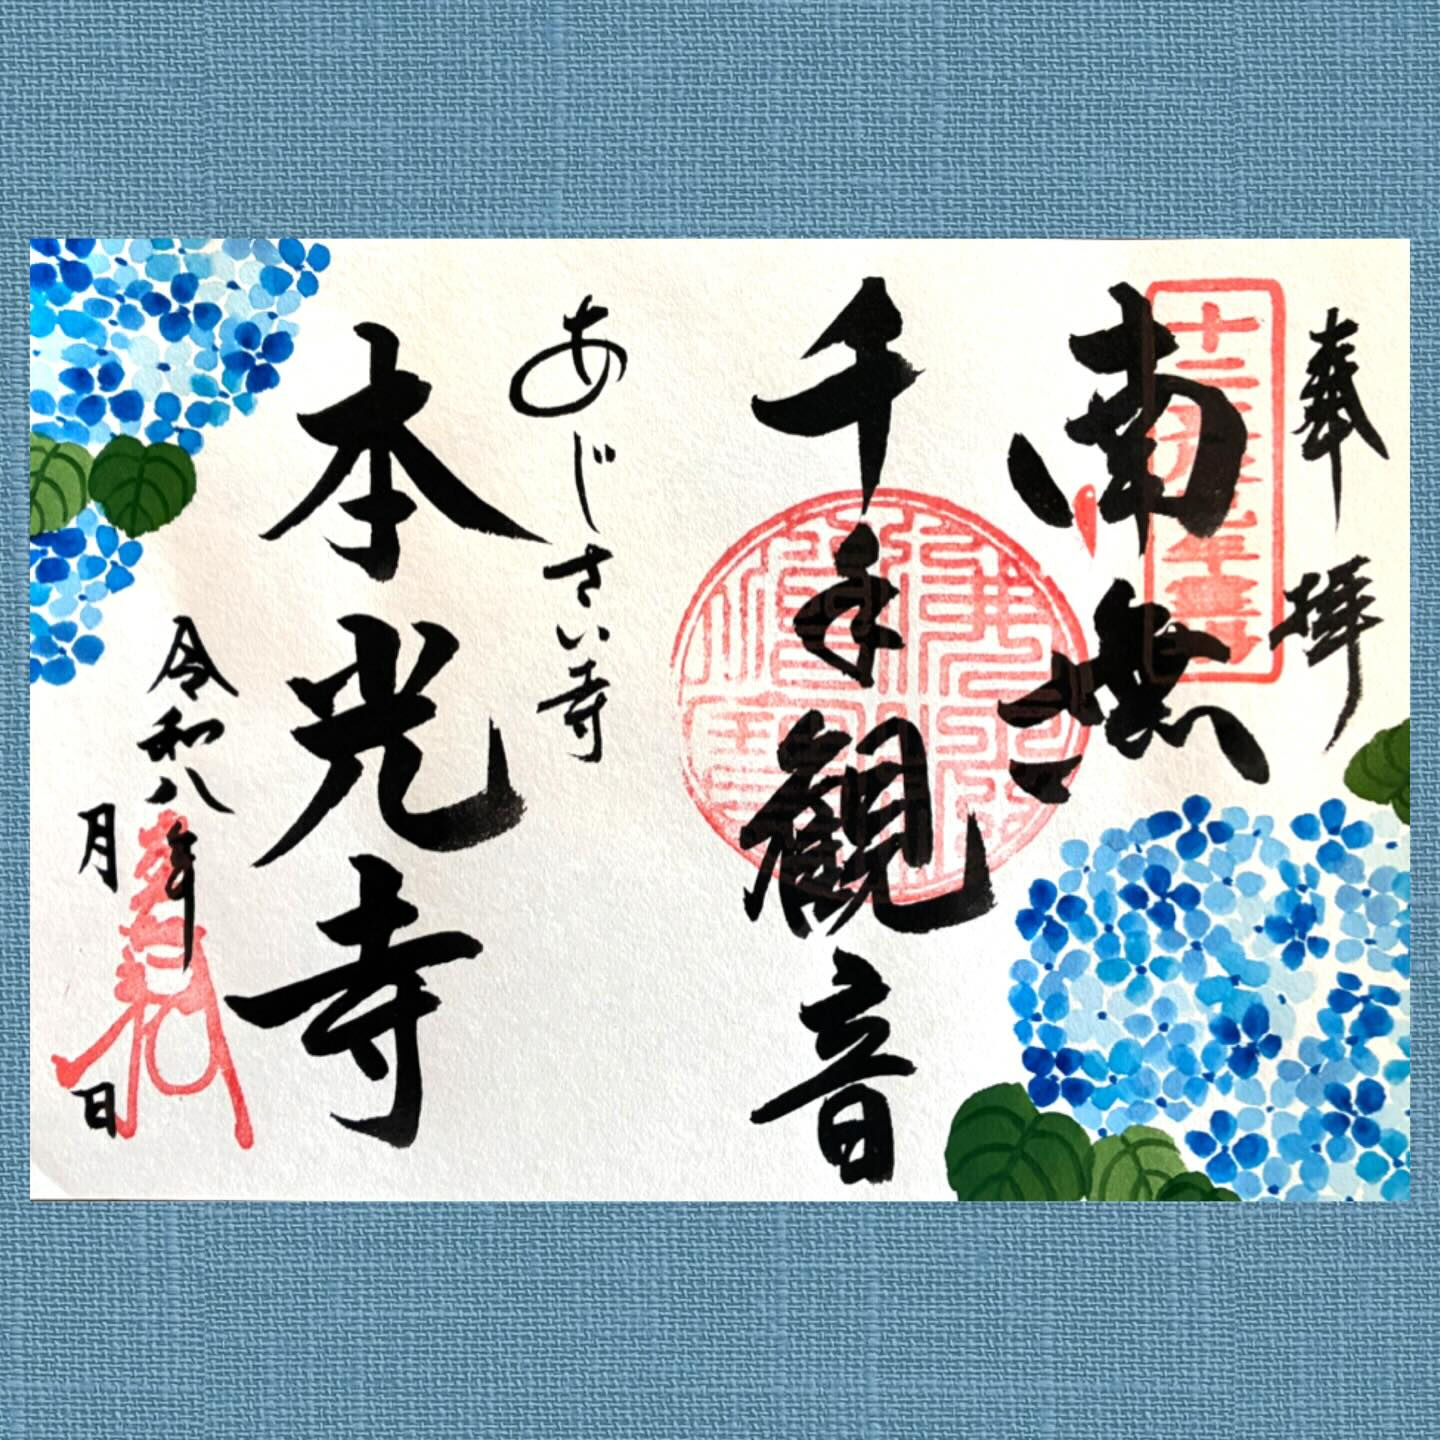 奉拝
南無
千手観音
あじさい寺
本光寺
令和八年
月 日